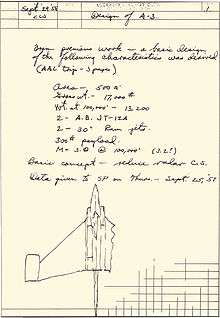 Sept 24, '58
Design of A-3.
1
From previous work - a basic design
of the following characteristics was derived
Area - 500 □'
Gross wt. - 17,000 #
Wt. at 100,000' - 13,200
2 - A.B. JT-12A
2 - 30" Ram jets.
300# payload
M = 3.0 @ 100,000' (3.2!)
Basic concept - reduce radar C.S.
Data given to on Thurs. - Sept 25, '58